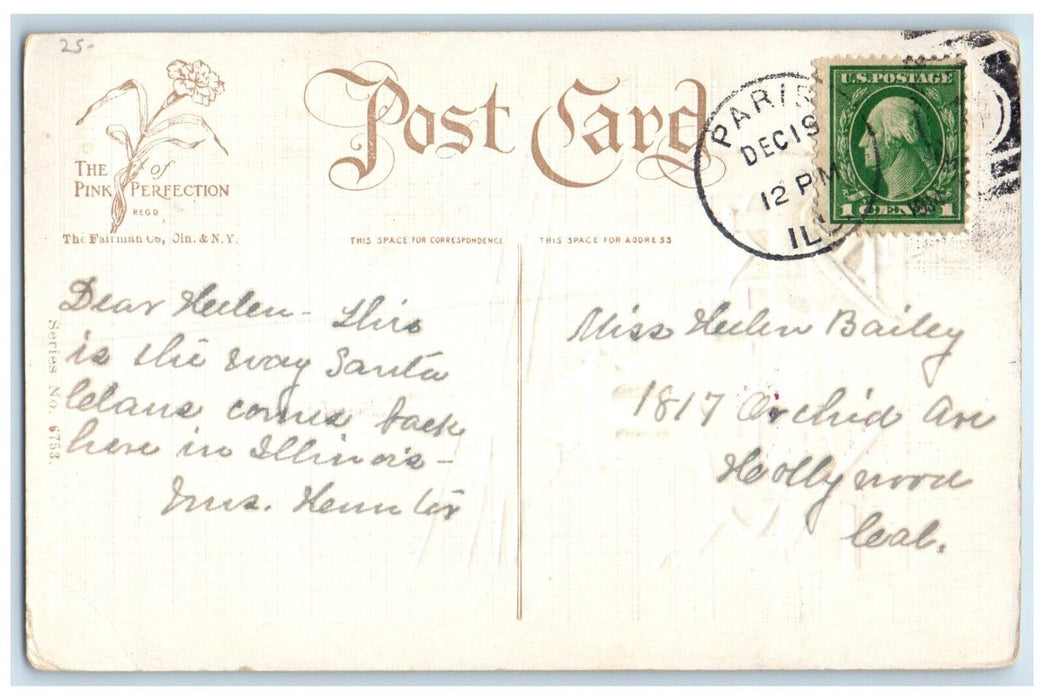 25-
THE of
PINK PERFECTION
REGD
The Fairman Co, Cin. & N.Y.
Post Card
PARIS
DEC 19
12 PM
ILL
U.S. POSTAGE
1 CENT 1
THIS SPACE FOR CORRESPONDENCE
THIS SPACE FOR ADDRESS
Series No. 6753.
Dear Helen - this
is the way Santa
Claus comes back
here in Illinois -
Mrs.
Miss Helen Bailey
1817 Orchid Ave
Hollywood
Cal.